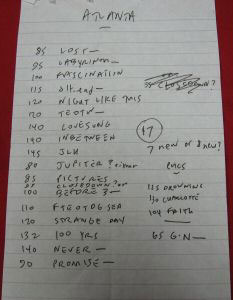 ATLANTA
85 LOST —
85 LABYRINTH —
100 FASCINATION
115 alt.end —
120 NIGHT LIKE THIS
120 TEOTW —
140 LOVESONG
140 INBETWEEN
145 JLH
80 JUPITER? either
85 PICTURES
CLOSEDOWN? or
100 BEFORE 3 —
110 FTEOTDGSEA
120 STRANGE DAY
132 100 YRS
140 NEVER —
90 PROMISE —
CLOSEDOWN?
17
7 new or 8 new?
115 DROWNING
110 CHARLOTTE
104 FAITH
65 G.N —